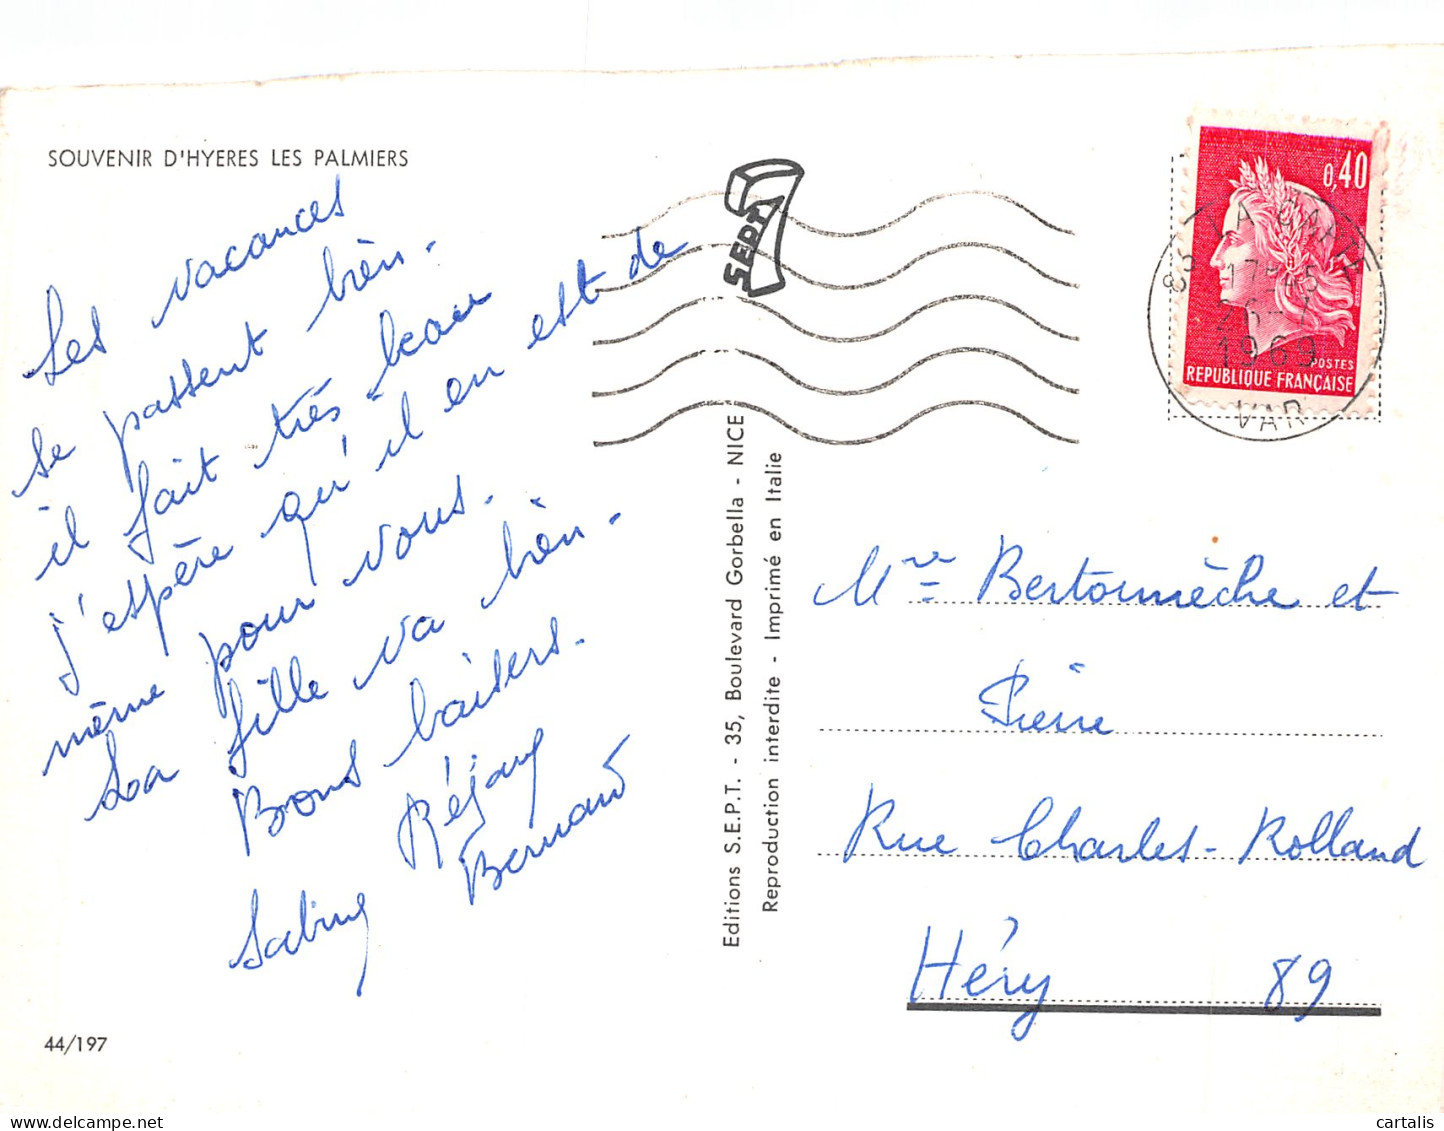 SOUVENIR D'HYERES LES PALMIERS
Les vacances
se passent bien.
il fait très beau
j'espère qu'il en est de
même pour vous.
La fille va bien.
Bons baisers.
Réjany
Bernard
Sabiny
44/197
SEPT
Editions S.E.P.T. - 35, Boulevard Gorbella - NICE
Reproduction interdite - Imprimé en Italie
0,40
POSTES
REPUBLIQUE FRANÇAISE
83 LA
17-45
26-7
1969
VAR
Mme Bertoumèche et
Pierre
Rue Charles-Rolland
Héry 89
cartalis